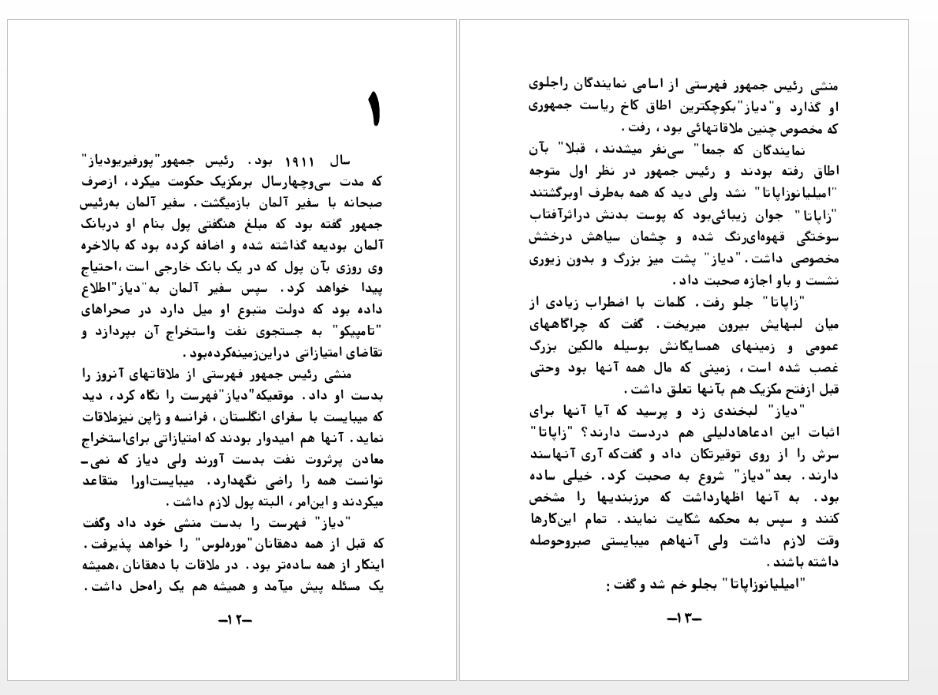 ۱
سال ۱۹۱۱ بود. رئیس جمهور"پورفیریودیاز"
که مدت سی‌وچهارسال برمکزیک حکومت میکرد، ازصرف
صبحانه با سفیر آلمان بازمیگشت. سفیر آلمان به‌رئیس
جمهور گفته بود که مبلغ هنگفتی پول بنام او دربانک
آلمان بودیعه گذاشته شده و اضافه کرده بود که بالاخره
وی روزی بآن پول که در یک بانک خارجی است ،احتیاج
پیدا خواهد کرد. سپس سفیر آلمان به"دیاز"اطلاع
داده بود که دولت متبوع او میل دارد در صحراهای
"تامپیکو" به جستجوی نفت واستخراج آن بپردازد و
تقاضای امتیازاتی دراین‌زمینه‌کرده‌بود.
منشی رئیس جمهور فهرستی از ملاقاتهای آنروز را
بدست او داد. موقعیکه"دیاز"فهرست را نگاه کرد، دید
که میبایست با سفرای انگلستان، فرانسه و ژاپن نیزملاقات
نماید. آنها هم امیدوار بودند که امتیازاتی برای‌استخراج
معادن پرثروت نفت بدست آورند ولی دیاز که نمی‌ـ
توانست همه را راضی نگهدارد. میبایست‌اورا متقاعد
میکردند و این‌امر، البته پول لازم داشت.
"دیاز" فهرست را بدست منشی خود داد وگفت
که قبل از همه دهقانان"موره‌لوس" را خواهد پذیرفت.
اینکار از همه ساده‌تر بود. در ملاقات با دهقانان ،همیشه
یک مسئله پیش میآمد و همیشه هم یک راه‌حل داشت.
ـ۱۲ـ
منشی رئیس جمهور فهرستی از اسامی نمایندگان راجلوی
او گذارد و"دیاز"بکوچکترین اطاق کاخ ریاست جمهوری
که مخصوص چنین ملاقاتهائی بود، رفت.
نمایندگان که جمعا" سی‌نفر میشدند، قبلا" بآن
اطاق رفته بودند و رئیس جمهور در نظر اول متوجه
"امیلیانوزاپاتا" نشد ولی دید که همه به‌طرف اوبرگشتند
"زاپاتا" جوان زیبائی‌بود که پوست بدنش دراثرآفتاب
سوختگی قهوه‌ای‌رنگ شده و چشمان سیاهش درخشش
مخصوصی داشت."دیاز" پشت میز بزرگ و بدون زیوری
نشست و باو اجازه صحبت داد.
"زاپاتا" جلو رفت. کلمات با اضطراب زیادی از
میان لبهایش بیرون میریخت. گفت که چراگاههای
عمومی و زمینهای همسایگانش بوسیله مالکین بزرگ
غصب شده است، زمینی که مال همه آنها بود وحتی
قبل ازفتح مکزیک هم بآنها تعلق داشت.
"دیاز" لبخندی زد و پرسید که آیا آنها برای
اثبات این ادعاهادلیلی هم دردست دارند؟ "زاپاتا"
سرش را از روی توقیرتکان داد و گفت‌که آری آنهاسند
دارند. بعد"دیاز" شروع به صحبت کرد. خیلی ساده
بود. به آنها اظهارداشت که مرزبندیها را مشخص
کنند و سپس به محکمه شکایت نمایند. تمام این‌کارها
وقت لازم داشت ولی آنهاهم میبایستی صبروحوصله
داشته باشند.
"امیلیانوزاپاتا" بجلو خم شد و گفت:
ـ۱۳ـ